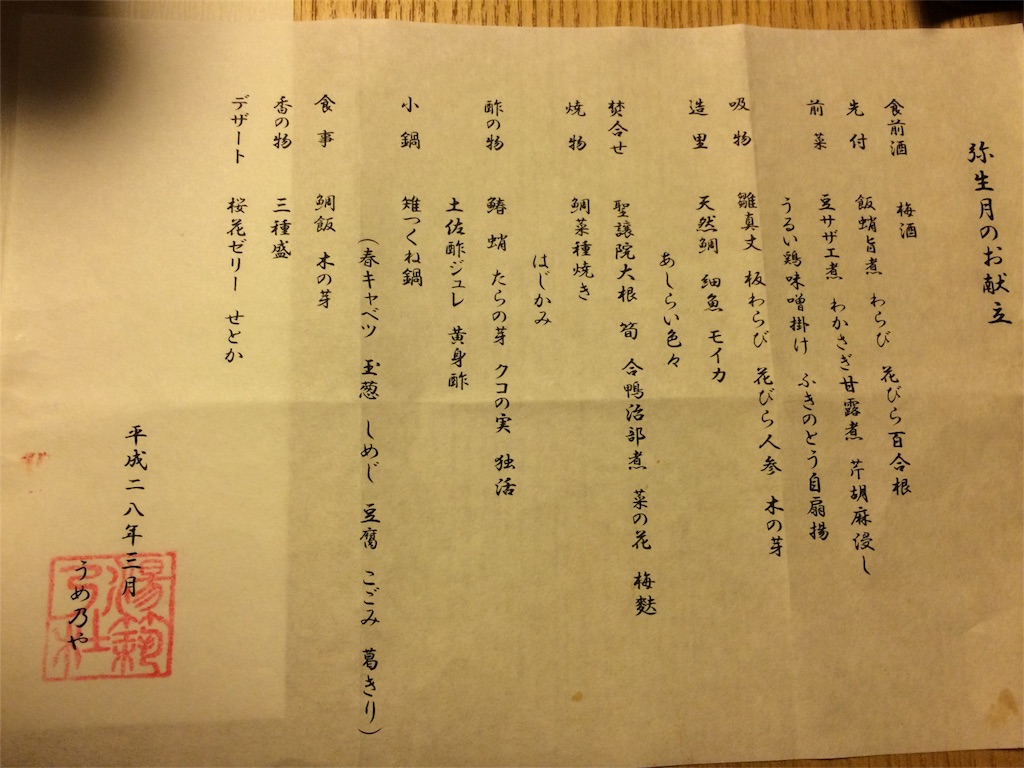 弥生月のお献立
食前酒　梅酒
先付　飯蛸旨煮　わらび　花びら百合根
前菜　豆サザエ煮　わかさぎ甘露煮　芹胡麻浸し
うるい鶏味噌掛け　ふきのとう自扇揚
吸物　雛真丈　板わらび　花びら人参　木の芽
造里　天然鯛　細魚　モイカ
あしらい色々
焚合せ　聖護院大根　筍　合鴨治部煮　菜の花　梅麩
焼物　鯛菜種焼き
はじかみ
酢の物　鰆　蛸　たらの芽　クコの実　独活
土佐酢ジュレ　黄身酢
小鍋　雉つくね鍋
（春キャベツ　玉葱　しめじ　豆腐　こごみ　葛きり）
食事　鯛飯　木の芽
香の物　三種盛
デザート　桜花ゼリー　せとか
平成二八年三月
うめ乃や